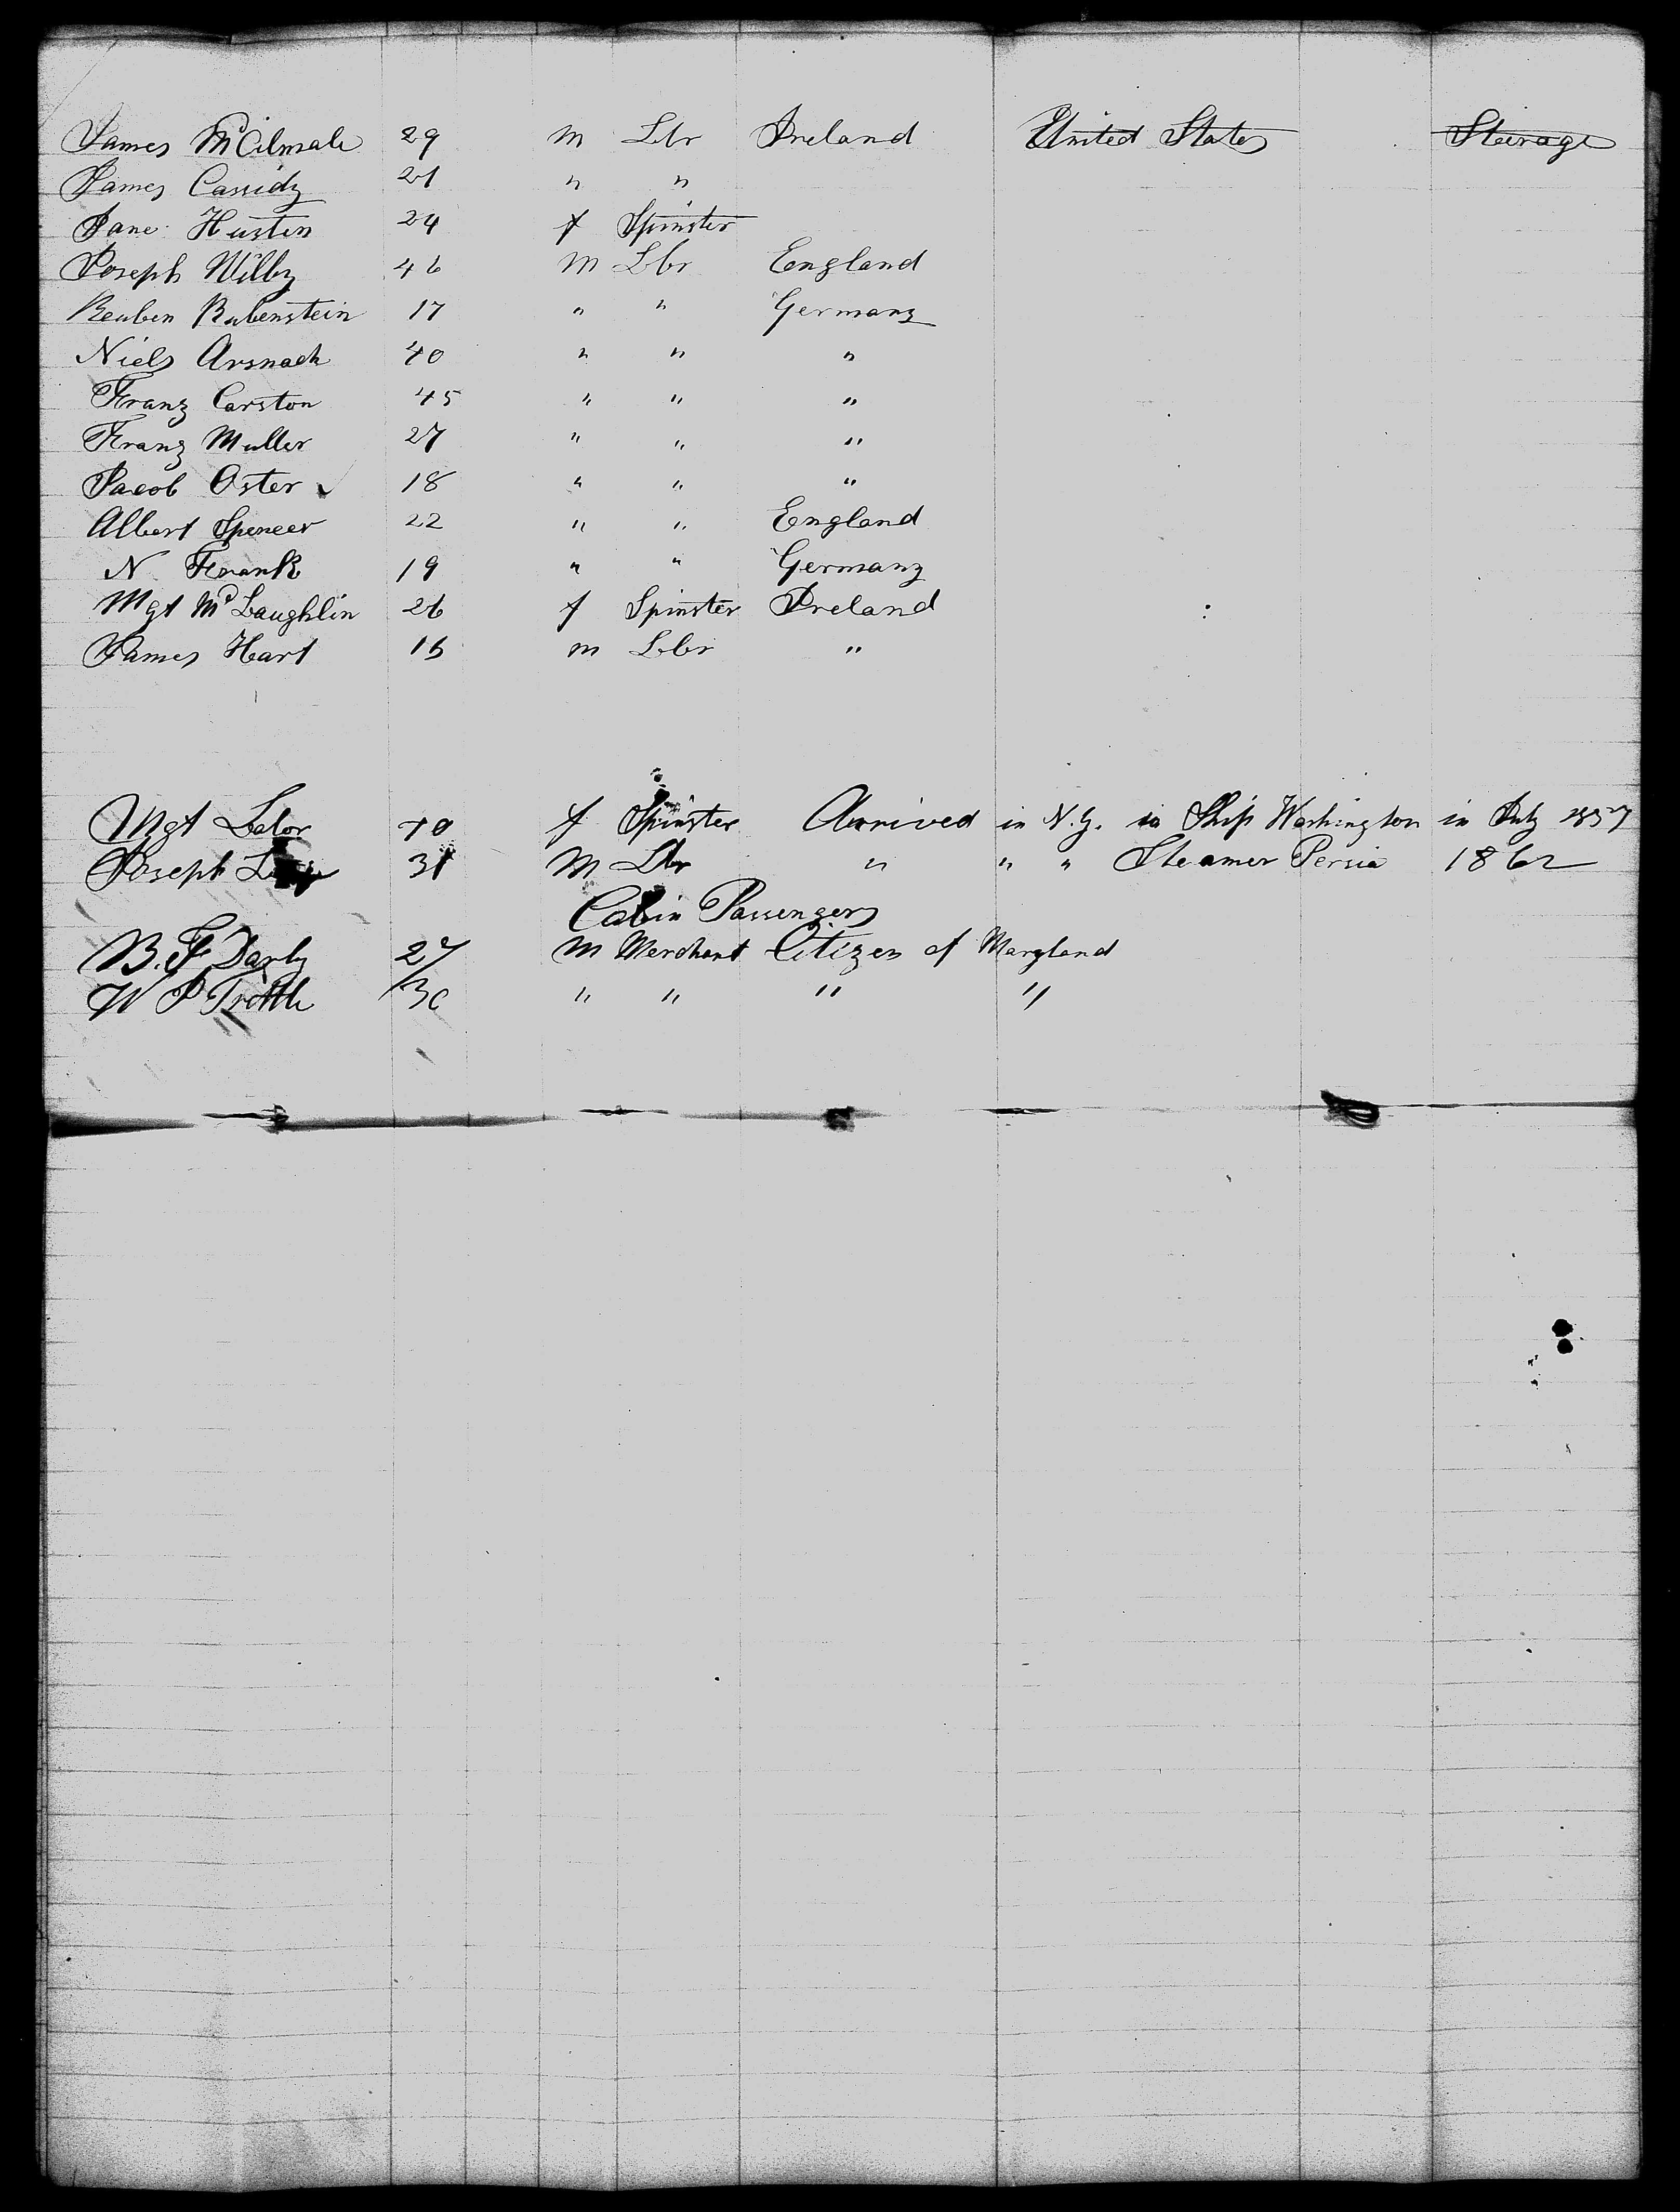 James McIlmale 29 m Lbr Ireland United States Steerage
James Cassidy 21 " "
Jane Husten 24 f Spinster
Joseph Wilby 46 m Lbr England
Reuben Rubenstein 17 " " Germany
Niels Arsnach 40 " " "
Franz Carston 45 " " "
Franz Muller 27 " " "
Jacob Oster 18 " " "
Albert Spencer 22 " " England
N Frank 19 " " Germany
Mgt McLaughlin 26 f Spinster Ireland
James Hart 16 m Lbr "
Mgt Lalor 40 f Spinster Arrived in N.Y. in Ship Washington in July 1857
Joseph 31 m Lbr " " " Steamer Persia 1862
Cabin Passengers
B. F. Darby 27 m Merchant Citizen of Maryland
W P Trottle 30 " " " "